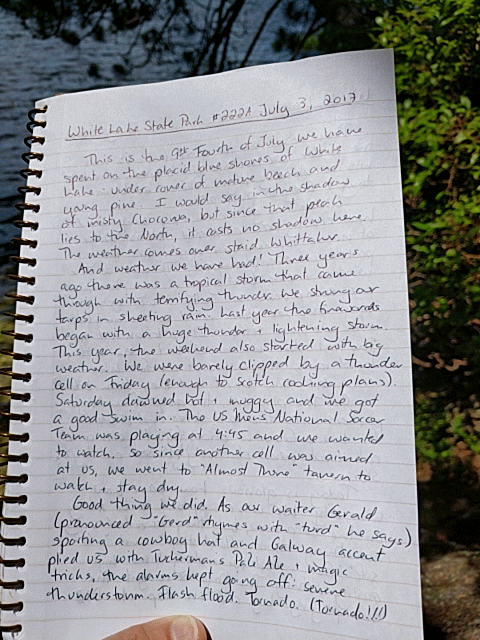 White Lake State Park #222A July 3, 2017
This is the 9th Fourth of July we have
spent on the placid blue shores of White
Lake under cover of mature beech and
young pine. I would say in the shadow
of misty Chocorua, but since that peak
lies to the North, it casts no shadow here.
The weather comes over staid Whittaker.
And weather we have had! Three years
ago there was a tropical storm that came
through with terrifying thunder. We strung our
tarps in sheeting rain. Last year the fireworks
began with a huge thunder + lightening storm.
This year, the weekend also started with big
weather. We were barely clipped by a thunder
cell on Friday (enough to scotch cooking plans).
Saturday dawned hot + muggy and we got
a good swim in. The US Mens National Soccer
Team was playing at 4:45 and we wanted
to watch. So since another cell was aimed
at us, we went to "Almost There" tavern to
watch + stay dry.
Good thing we did. As our waiter Gerald
(pronounced "Gerd" rhymes with "turd" he says)
sporting a cowboy hat and Galway accent
plied us with Tuckermans Pale Ale + magic
tricks, the alarms kept going off: severe
thunderstorm. Flash flood. Tornado. (Tornado!!!)